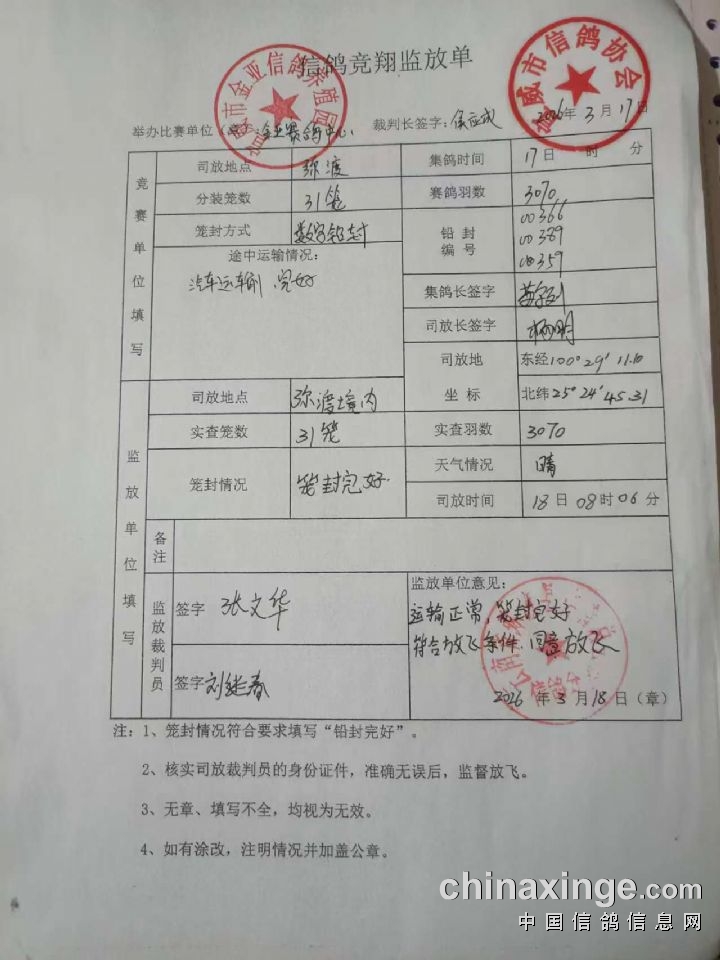 信鸽竞翔监放单
威市信鸽协会
市金亚信鸽养殖
举办比赛单位（章）：金亚赛鸽中心
裁判长签字：
2026年3月17日
竞赛单位填写
司放地点 弥渡 集鸽时间 17日 时 分
分装笼数 31笼 赛鸽羽数 3070
笼封方式 数字铅封 铅封编号 00366
00389
00359
途中运输情况：
汽车运输 完好
集鸽长签字
司放长签字 杨明
司放地坐标 东经100°29′11.10
北纬25°24′45.31
监放单位填写
司放地点 弥渡境内
实查笼数 31笼 实查羽数 3070
笼封情况 笼封完好 天气情况 晴
司放时间 18日08时06分
备注
监放裁判员
签字 张文华
签字 刘继春
监放单位意见：
运输正常，笼封完好
符合放飞条件，同意放飞
信鸽
2026年3月18日（章）
注：1、笼封情况符合要求填写“铅封完好”。
2、核实司放裁判员的身份证件，准确无误后，监督放飞。
3、无章、填写不全，均视为无效。
4、如有涂改，注明情况并加盖公章。
chinaxinge.com
中国信鸽信息网